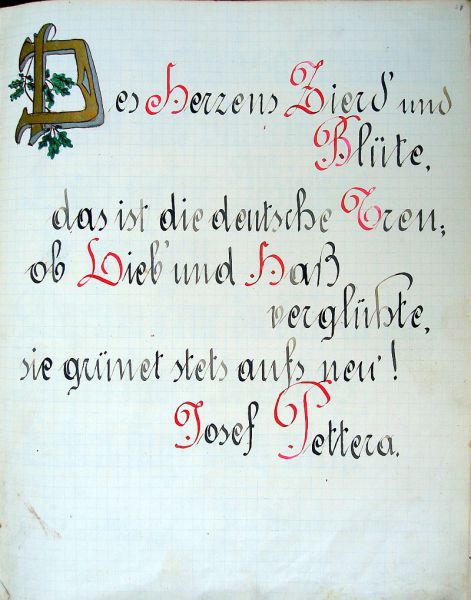 Des Herzens Zierd' und
Blüte,
das ist die deutsche Treu;
ob Lieb' und Haß
verglühte,
sie grünet stets aufs neu'!
Josef Pettera.